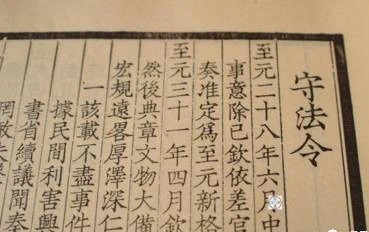 守法令
至元二十八年六月中
事意除已欽依差官
奏准定爲至元新格
至元三十一年四月欽
然後典章文物大備
宏規遠畧厚澤深仁
一該載不盡事件
據民間利害興
書省續議聞奏